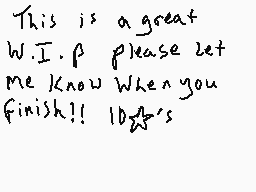 This is a great
W.I.P please let
me know when you
finish!! 10☆'s